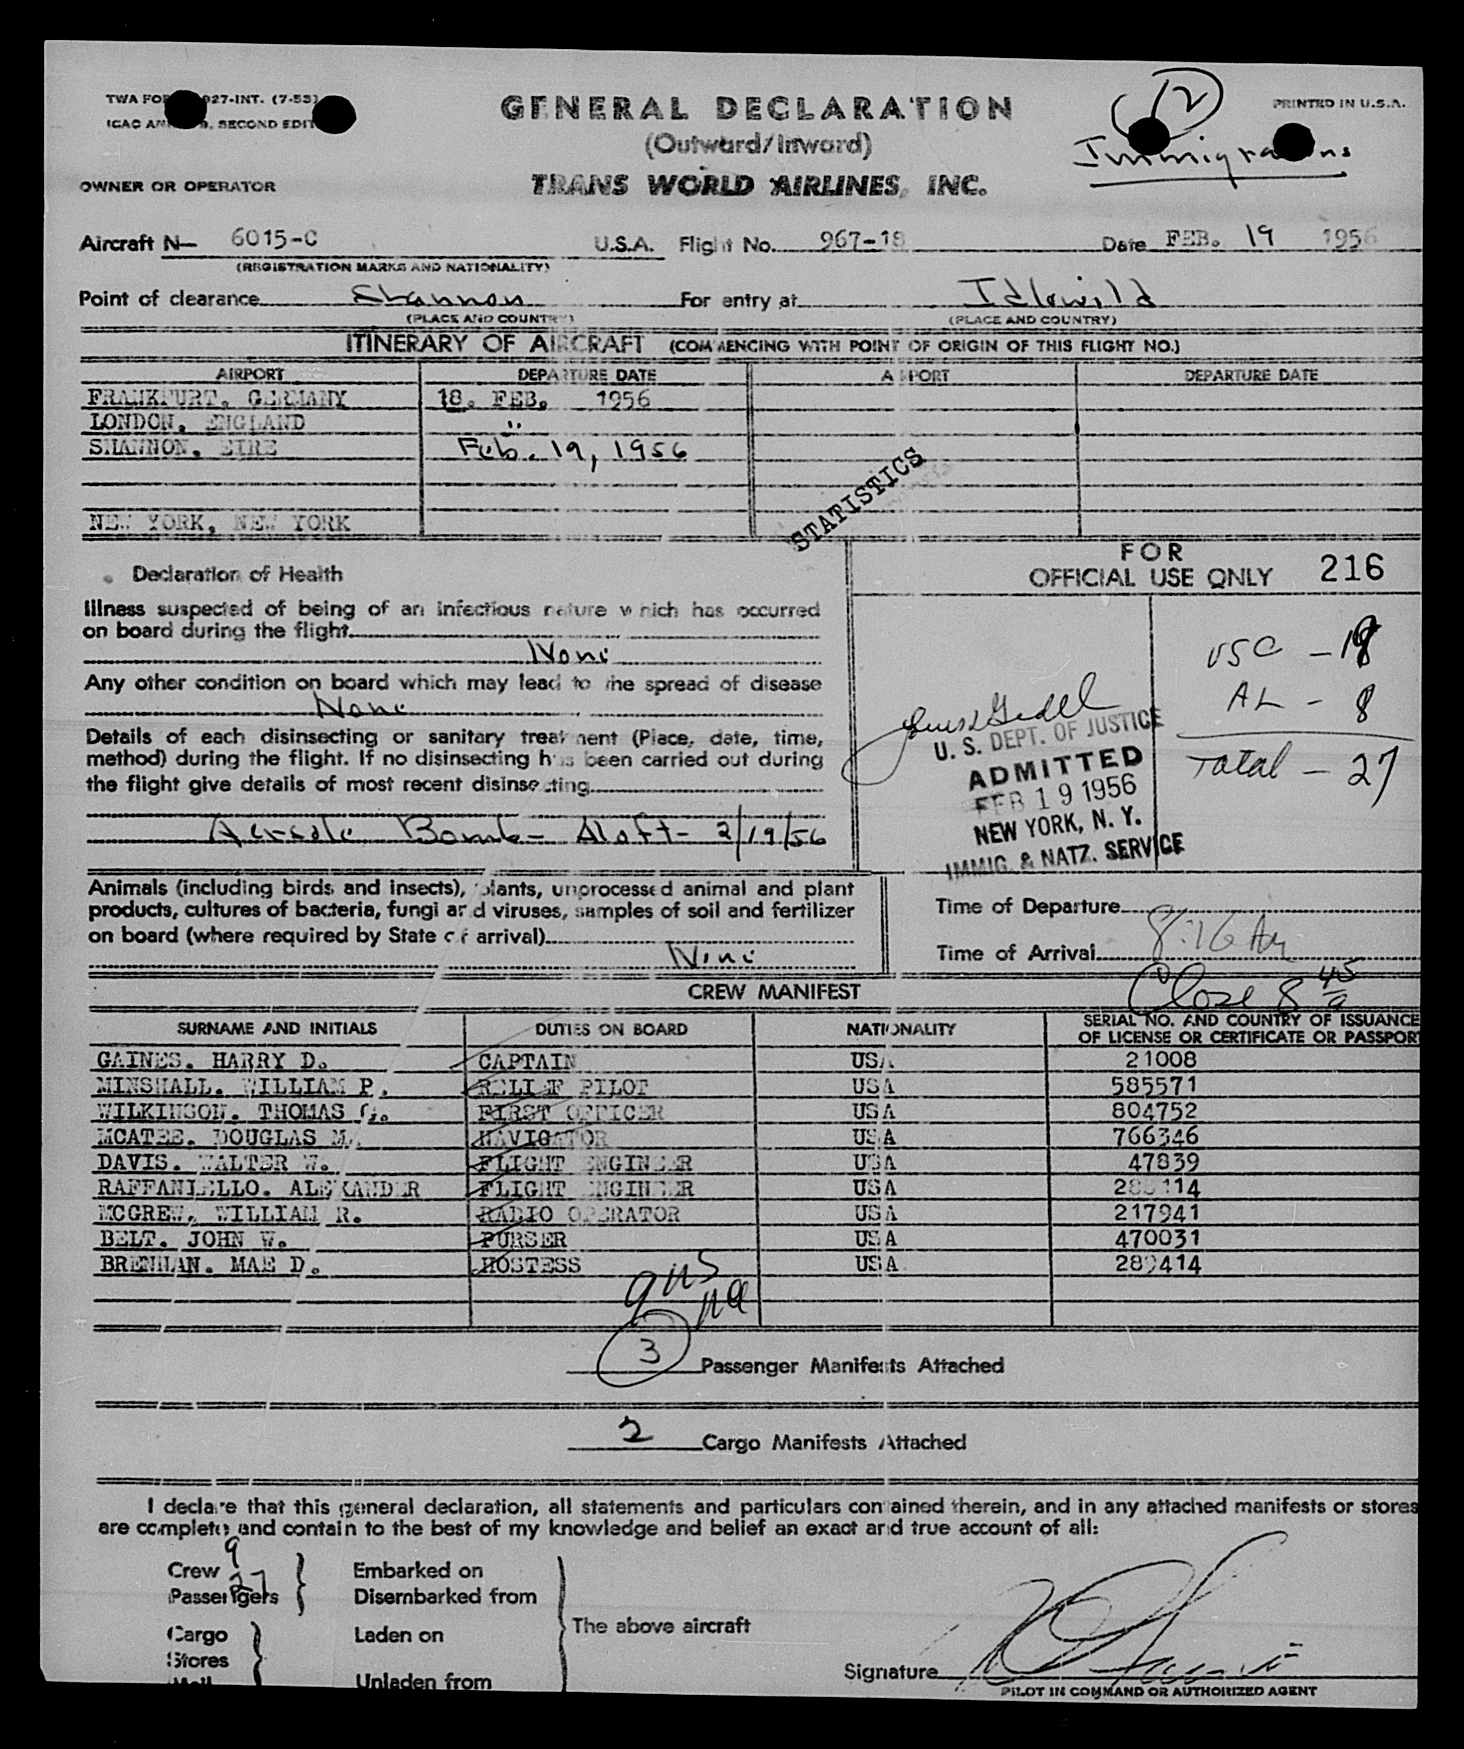 GENERAL DECLARATION
PRINTED IN U.S.A.
(Outward/Inward)
OWNER OR OPERATOR
TRANS WORLD AIRLINES, INC.
Aircraft N— 6015-C U.S.A. Flight No. 967-18 Date FEB. 19 1956
(REGISTRATION MARKS AND NATIONALITY)
Point of clearance Shannon For entry at Idlewild
(PLACE AND COUNTRY) (PLACE AND COUNTRY)
ITINERARY OF AIRCRAFT (COMMENCING WITH POINT OF ORIGIN OF THIS FLIGHT NO.)
AIRPORT DEPARTURE DATE AIRPORT DEPARTURE DATE
FRANKFURT, GERMANY 18. FEB. 1956
LONDON, ENGLAND "
SHANNON, EIRE Feb. 19, 1956
STATISTICS
NEW YORK, NEW YORK
FOR
OFFICIAL USE ONLY 216
Declaration of Health
Illness suspected of being of an infectious nature which has occurred
on board during the flight
None
Any other condition on board which may lead to the spread of disease
None
Details of each disinsecting or sanitary treatment (Place, date, time,
method) during the flight. If no disinsecting has been carried out during
the flight give details of most recent disinsecting
Aerosole Bomb - Aloft - 2/19/56
USC -
AL - 8
Total - 27
U. S. DEPT. OF JUSTICE
ADMITTED
FEB 19 1956
NEW YORK, N. Y.
IMMIG. & NATZ. SERVICE
Animals (including birds and insects), plants, unprocessed animal and plant
products, cultures of bacteria, fungi and viruses, samples of soil and fertilizer
on board (where required by State of arrival)
None
Time of Departure
Time of Arrival 8:16 AM
Close 8 45
CREW MANIFEST
SURNAME AND INITIALS DUTIES ON BOARD NATIONALITY SERIAL NO. AND COUNTRY OF ISSUANCE
OF LICENSE OR CERTIFICATE OR PASSPORT
GAINES. HARRY D. CAPTAIN USA 21008
MINSHALL. WILLIAM P. RELIEF PILOT USA 585571
WILKINSON. THOMAS G. FIRST OFFICER USA 804752
MCATEE. DOUGLAS M. NAVIGATOR USA 766346
DAVIS. WALTER W. FLIGHT ENGINEER USA 47839
RAFFANIELLO. ALEXANDER FLIGHT ENGINEER USA
MCGREW. WILLIAM R. RADIO OPERATOR USA 217941
BELT. JOHN W. PURSER USA 470031
BRENNAN. MAE D. HOSTESS USA 289414
3 Passenger Manifests Attached
2 Cargo Manifests Attached
I declare that this general declaration, all statements and particulars contained therein, and in any attached manifests or stores
are complete and contain to the best of my knowledge and belief an exact and true account of all:
Crew 9 Embarked on
Passengers 27 Disembarked from
The above aircraft
Cargo Laden on
Stores
Mail Unladen from
Signature
PILOT IN COMMAND OR AUTHORIZED AGENT